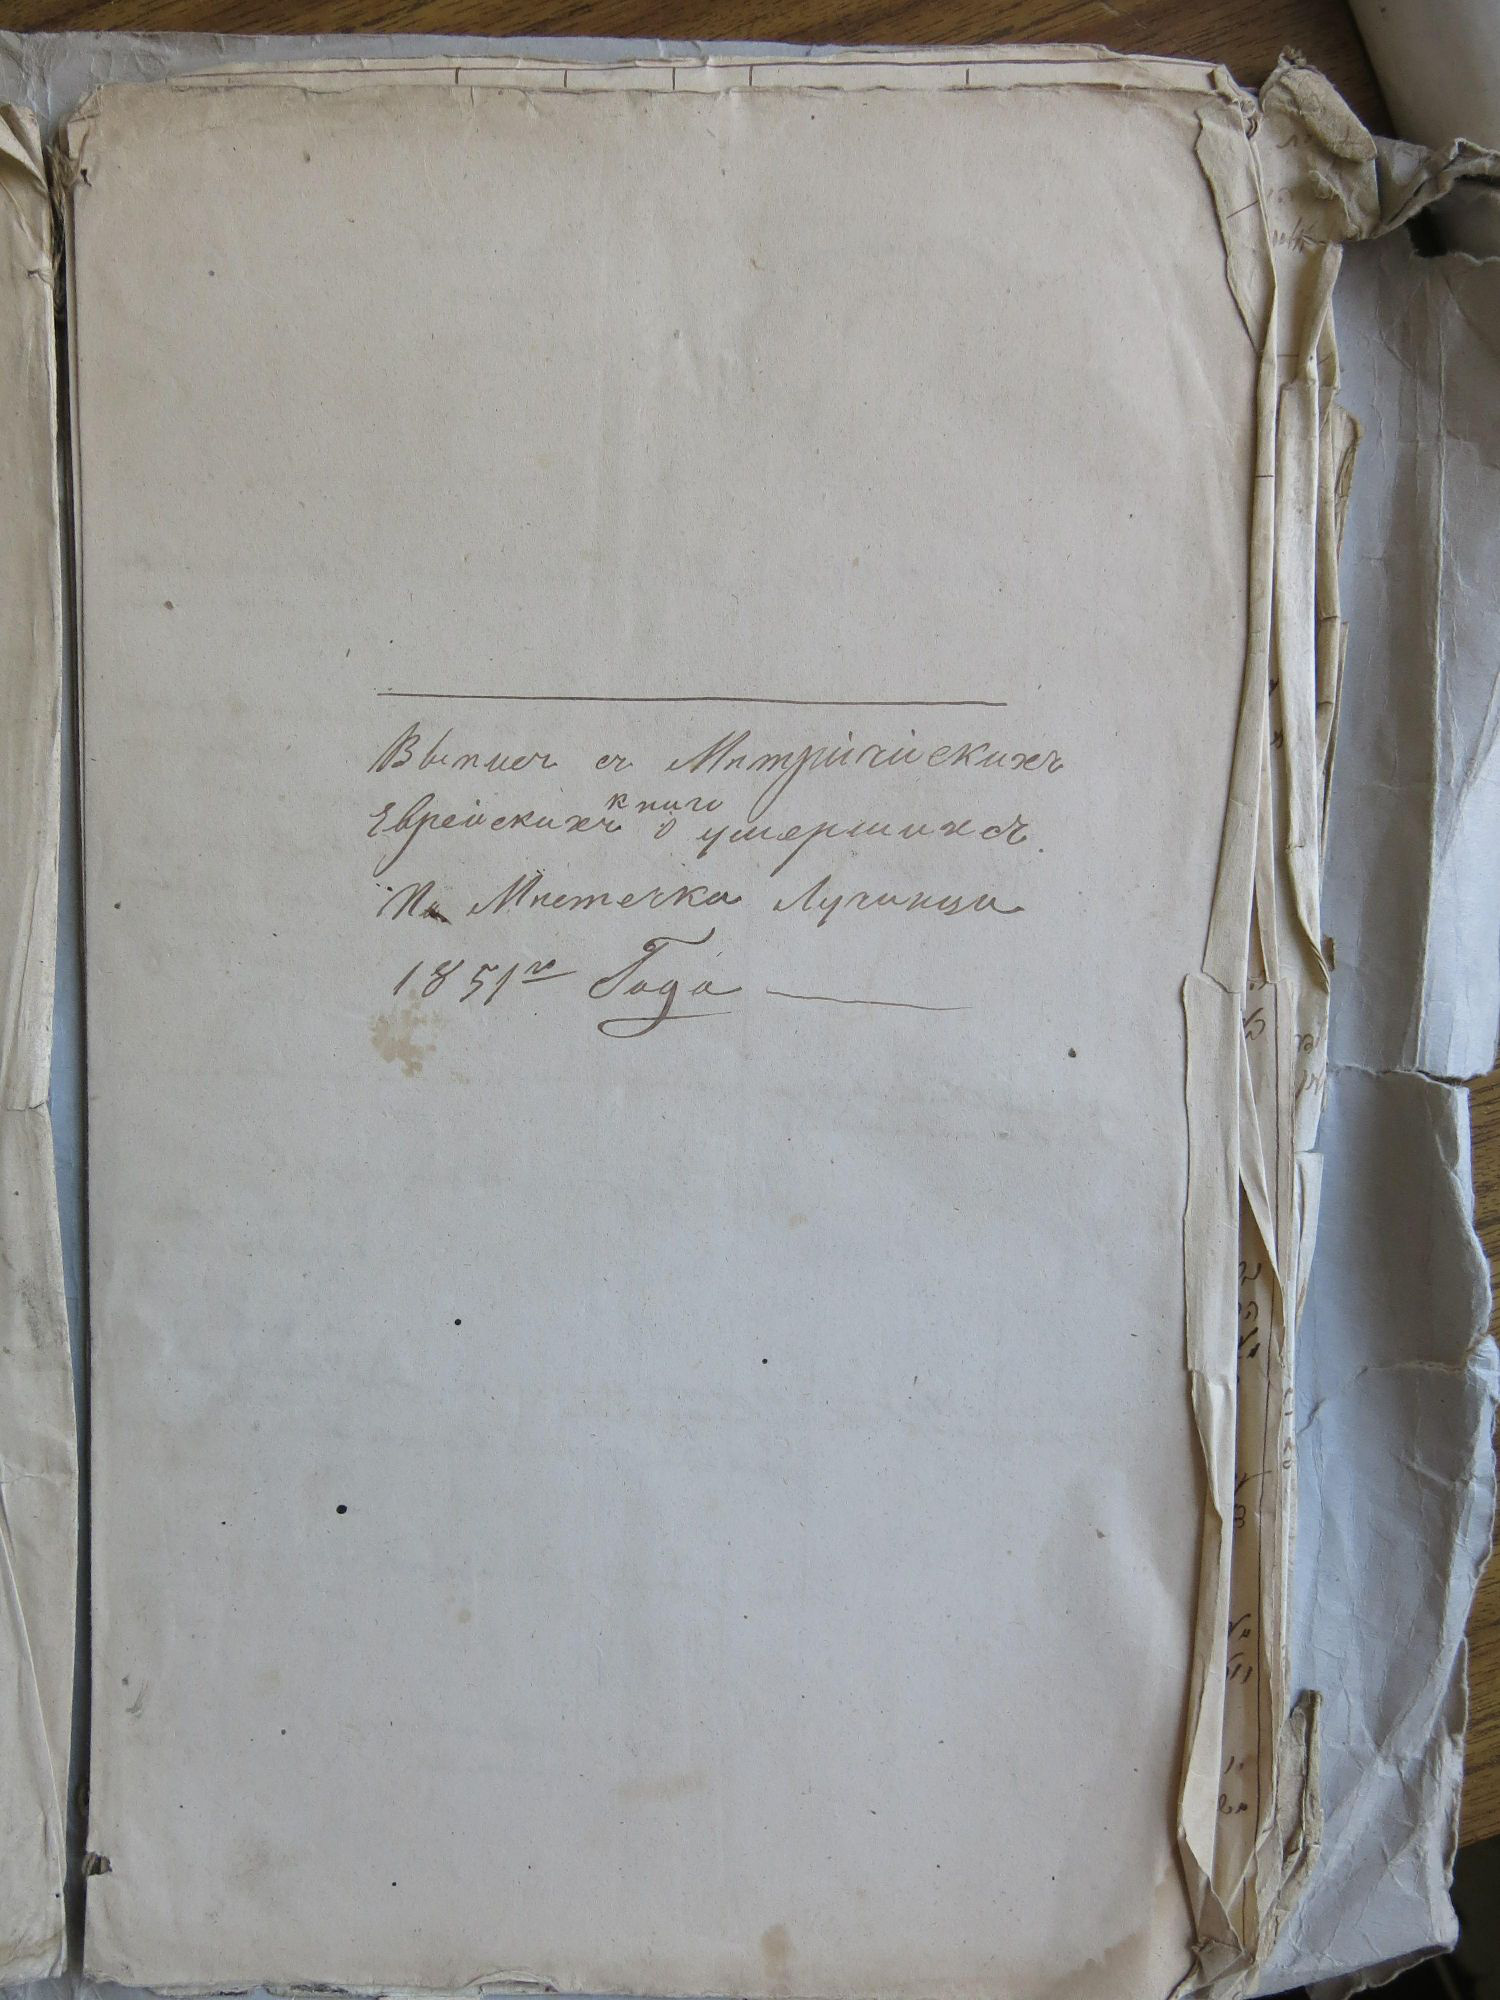 Выписъ съ Митричискихъ
Еврейскихъ книго о умершихсъ
По Мистечка Лучинци
1851го Года